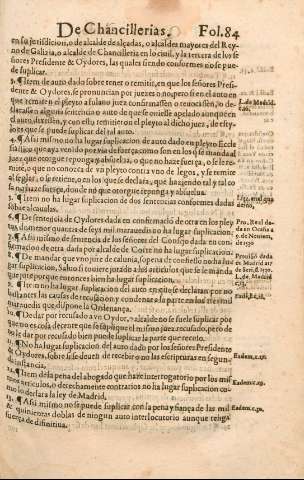 De Chancillerias. Fol. 84
en su jurisdicion, o de alcalde de alçadas, o alcaldes mayores del Rey-
no de Galizia, o alcalde de Chancilleria en lo ciuil, y la tercera de los se
ñores Presidente & Oydores, las quales siendo conformes no se pue
de suplicar.
¶ Item de auto dado sobre tener o remitir, en que los señores Presi-
dente & Oydores, se pronuncian por juezes o no juezes
remiten el pleyto a su juez confirmassen o reuocassen, o de-
clarassen alguna sentencia o auto de que se ouiesse apelado aunque en
el auto, dixessen, y con esto remitieron el pleyto al dicho juez, de estos
no se puede suplicar del tal auto.
¶ Assi mismo no ha lugar suplicacion de auto dado en pleyto Eccle
siastico que aya venido por via de fuerça como son en los que mandan al
juez que otorgue reponga y absuelua, o que no haze fuerça, o se le re-
mite, o que no conozca de va pleyto contra vno de legos, y se remite
al seglar, o se retiene, en los que se declara, que haziendo tal y tal co
sa no haze fuerça, donde no que otorgue reponga y absuelua.
¶ Item no ha lugar suplicacion de dos sentencias conformes dadas
sobre alcaualas.
¶ De sentencia de Oydores dada en confirmacion de otra en los pley
tos, de menor quantia de seys mil marauedis no ha lugar suplicacion.
¶ Assi mismo de sentencia de los señores del Consejo dada en con-
firmacion de otra dada por alcalde de Corte no ha lugar suplicacion.
¶ De mandar que vno jure de calunia, so pena de confesso no ha lu-
gar suplicacion, Saluo si touiere jurado a los articulos que se le manda
que jure porque entonces bien ha lugar suplicacion.
¶ Item no ha lugar suplicacion del auto en que se declaran por no
bastantes las causas de recusacion y condenan a la parte en los tres mil
marauedis que dispone la Ordenança.
¶ De dar por recusado a vn Oydor, o alcalde no se suele suplicar por
que no es cosa decente que se suplique el mismo juez recusado, pero de
no le dar por recusado bien puede suplicar la parte que recuso.
¶ No ha lugar suplicacion del auto dado por los señores Presidente
& Oydores, sobre si se deuen de recebir o no las escripturas en segunda
instancia.
¶ Item de la pena del abogado que haze interrogatorio por los mis
mos articulos, o derechamente contrarios no ha lugar suplicacion co-
mo lo declara la ley de Madrid.
¶ Assi mismo no se puede suplicar con la pena y fiança de las mil
& quinientas doblas de ningun auto interlocutorio aunque tenga
fuerça de difinitiua.